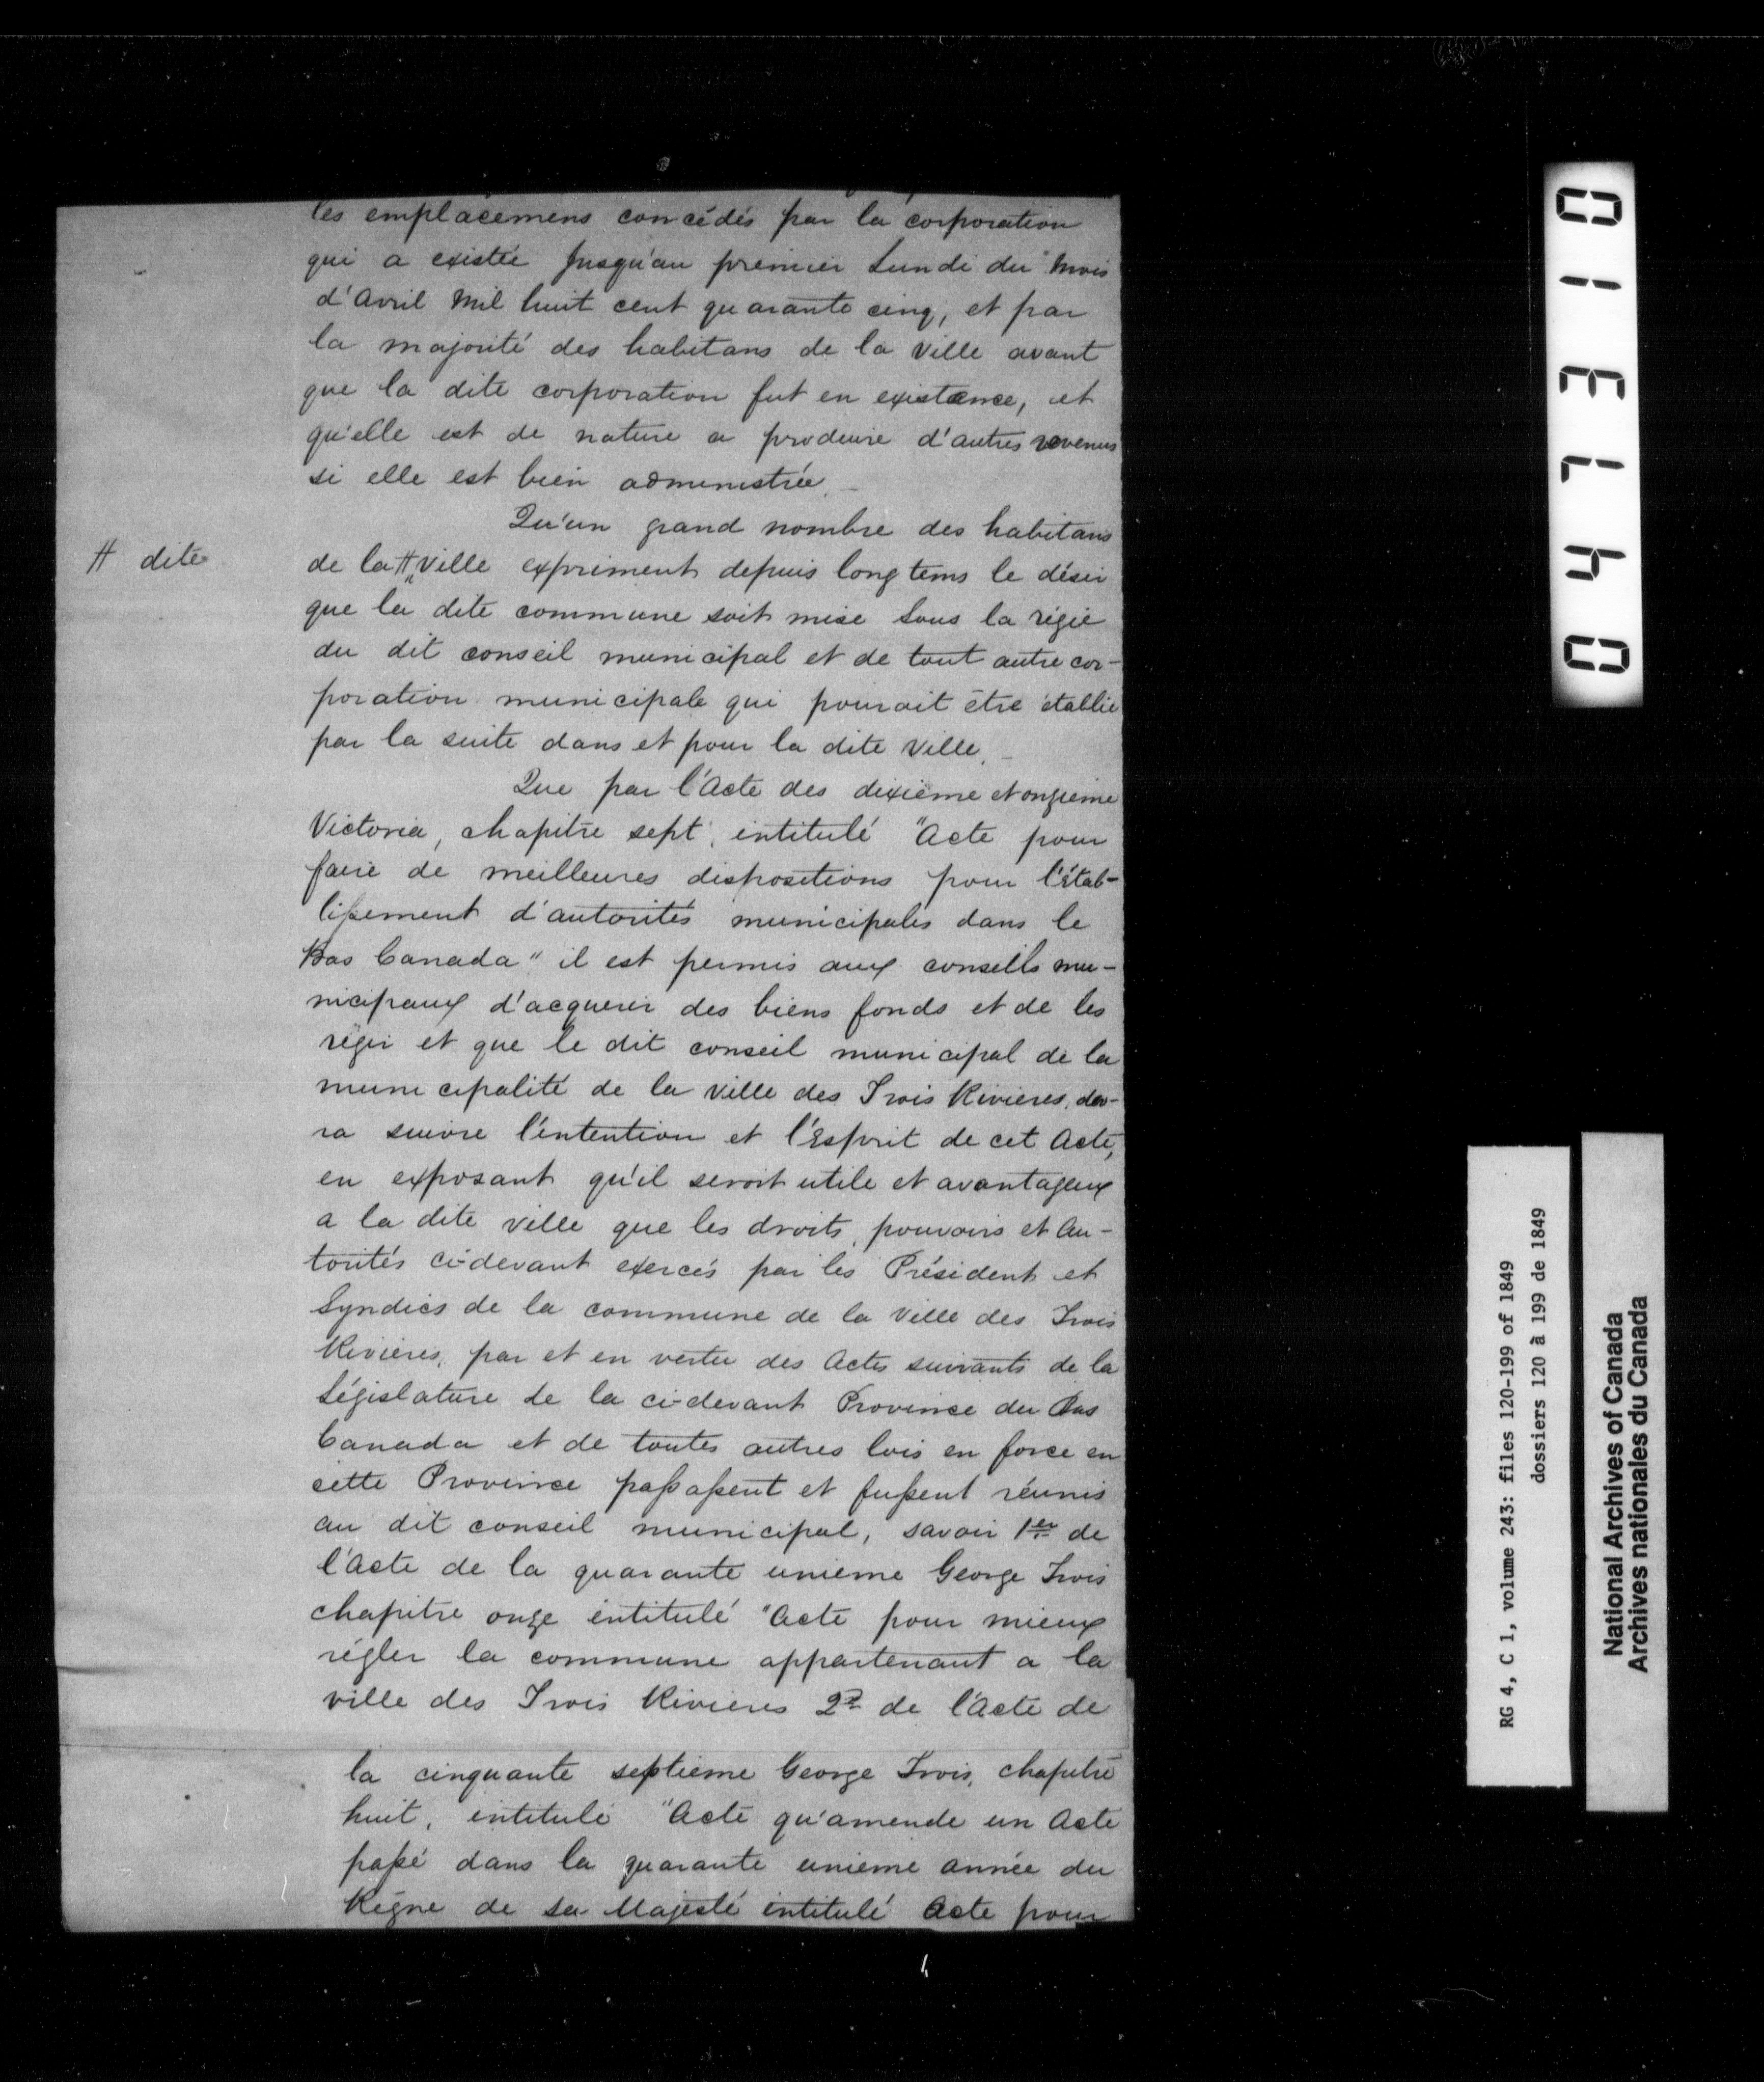 les emplacemens concédés par la corporation
qui a existée jusqu'au premier Lundi du Mois
d'Avril Mil huit cent quarante cinq, et par
la majorité des habitans de la Ville avant
que la dite corporation fut en existence, et
qu'elle est de nature a produire d'autres revenus
si elle est bien administrée. -
Qu'un grand nombre des habitans
# dite
de la # Ville expriment depuis long tems le désir
que la dite commune soit mise sous la régie
du dit conseil municipal et de tout autre cor-
poration municipale qui pourait être établie
par la suite dans et pour la dite Ville. -
Que par l'Acte des dixième et onzieme
Victoria, chapitre sept, intitulé "Acte pour
faire de meilleures dispositions pour l'étab-
lissement d'autorités municipales dans le
Bas Canada" il est permis aux conseils mu-
nicipaux d'acquerir des biens fonds et de les
régir et que le dit conseil municipal de la
municipalité de la Ville des Trois Rivières, dev-
ra suivre l'intention et l'Esprit de cet Acte,
en exposant qu'il seroit utile et avantageux
a la dite ville que les droits, pouvoirs et Au-
torités ci-devant exercés par les Président et
Syndics de la commune de la Ville des Trois
Rivières, par et en vertu des Actes suivants de la
Législature de la ci-devant Province du Bas
Canada et de toutes autres lois en force en
cette Province passassent et fussent réunis
au dit conseil municipal, savoir 1er de
l'Acte de la quarante unieme George Trois
chapitre onze intitulé "Acte pour mieux
régler la commune appartenant a la
ville des Trois Rivieres 2d de l'Acte de
la cinquante septieme George Trois, chapitre
huit, intitulé "Acte qu'amende un Acte
passé dans la quarante unieme année du
Règne de sa Majesté intitulé Acte pour
04731 0
RG 4, C 1, volume 243: files 120-199 of 1849
dossiers 120 à 199 de 1849
National Archives of Canada
Archives nationales du Canada